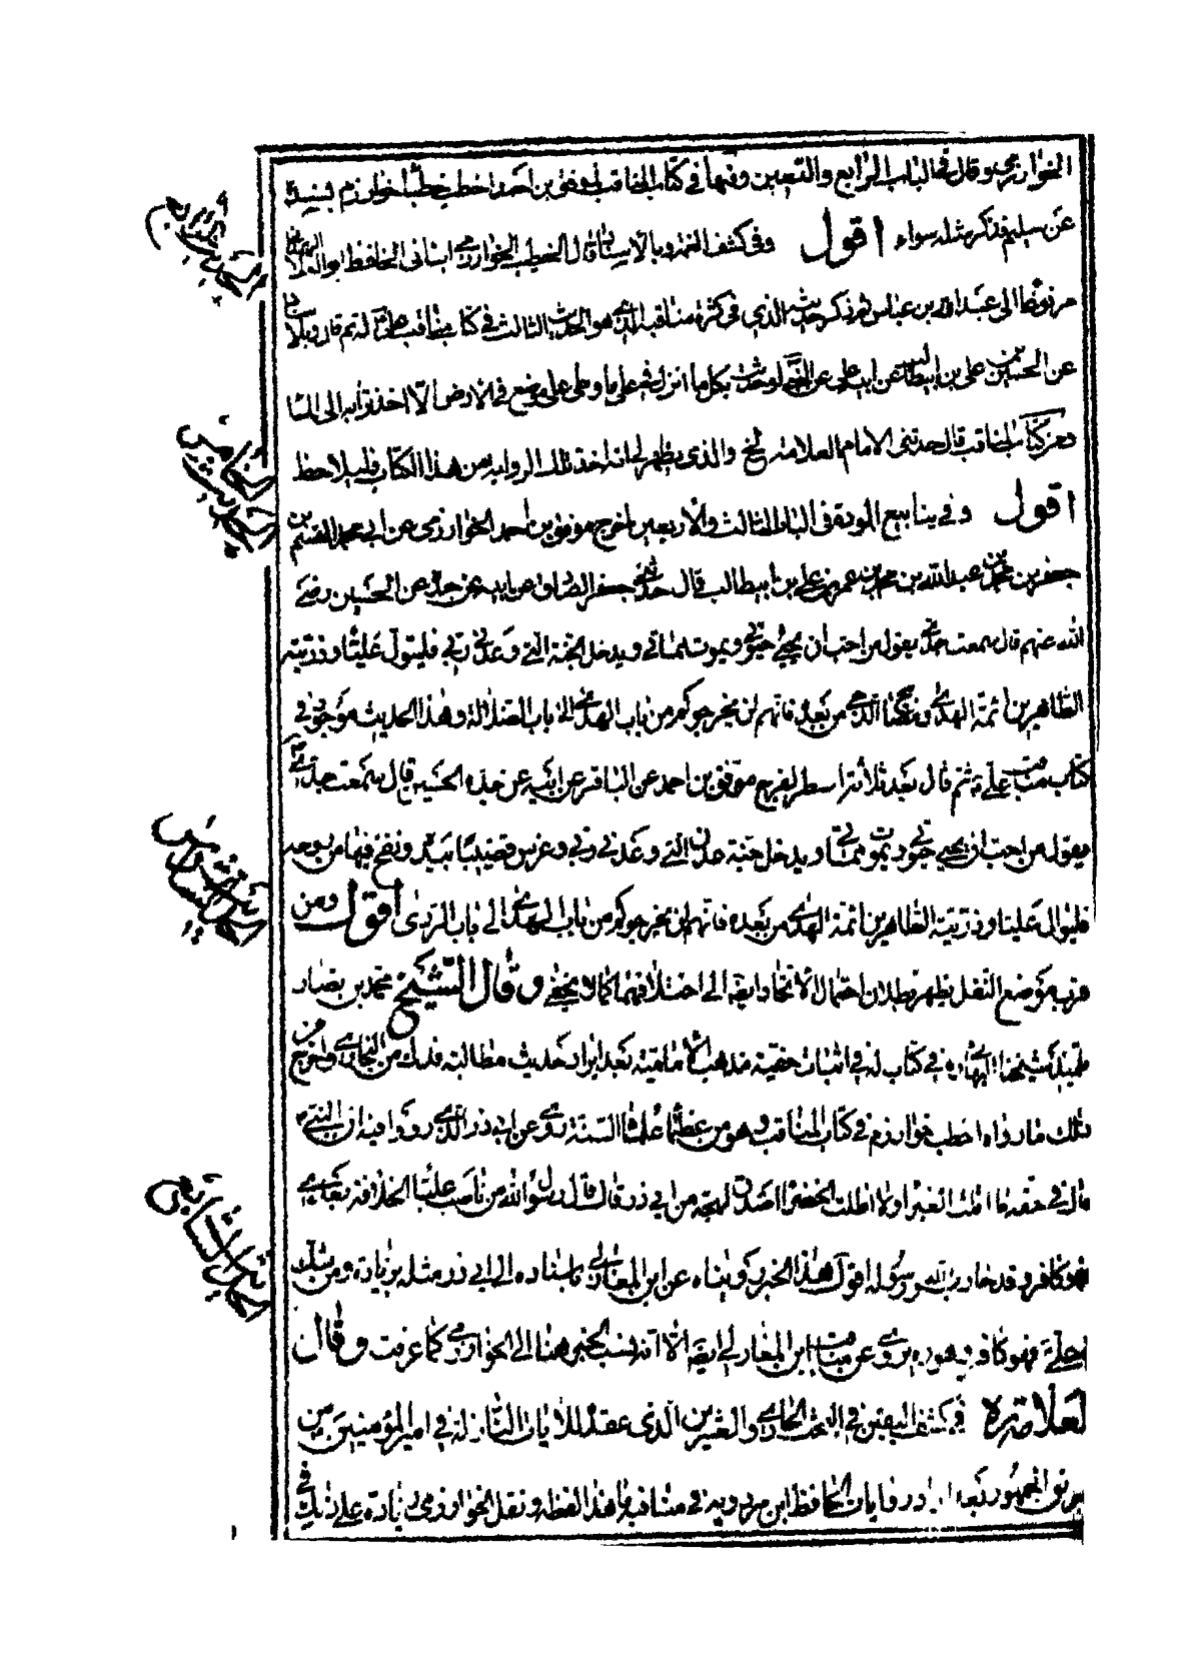 الخوارزمي وقال في الباب الرابع والتسعين وفيها في كتاب المناقب لموفق بن احمد اخطب خطباء خوارزم بسنده
عن سليم فذكر مثله سواء اقول وفي كشف الغمة وبالاسناد قال الخطيب الخوارزمي انبأني الحافظ ابو العلاء
مرفوعا الى عبد الله بن عباس ثم ذكر حديثه الذي في كثرة مناقبه الذي هو الحديث الثالث في كتاب مناقب
عن الحسين بن علي بن ابيطالب عن ابيه علي عن النبي لو حدثت بكل ما انزل في علي ما وطى على موضع في الارض الا اخذ ترابه الى الماء
كتاب المناقب قال حدثني الامام العلامة الخ والذي يظهر لي انه اخذ تلك الرواية من هذا الكتاب فليلاحظ
اقول وفي ينابيع المودة في الباب الثالث والأربعين اخرج موفق بن احمد الخوارزمي عن ابي محمد القسم بن
جعفر بن محمد بن عبد الله بن محمد بن عمر بن علي بن ابيطالب قال حدثني جعفر الصادق عن ابيه عن جده عن الحسين رضي
الله عنهم قال سمعت جدي يقول من احب ان يحيى حيوتي ويموت مماتي ويدخل الجنة التي وعدني ربي فليتول عليا وذريته
الطاهرين ائمة الهدى ومصابيح الدجى من بعده فانهم لن يخرجوكم من باب الهدى الى باب الضلالة وهذا الحديث موجود في
كتاب مناقب علي ثم قال بعد ثلاثة اسطر اخرج موفق بن احمد عن الباقر عن ابيه عن جده الحسين قال سمعت جدي
يقول من احب ان يحيى حيوتي ويموت مماتي ويدخل جنة عدن التي وعدني ربي وغرس قضيبها بيده ونفخ فيها من روحه
فليوال عليا وذريته الطاهرين ائمة الهدى من بعده فانهم لن يخرجوكم من باب الهدى الى باب الردى اقول ومن
موضع النقل يظهر بطلان احتمال الاتحاد ايضا الى اختلافهما كما لا يخفى وقال الشيخ محمد بن نصار
تلميذ شيخنا البهائي ره في كتاب له في اثبات حقية مذهب الامامية بعد ايراد حديث مطالبة فدك من البخاري واخرج من
ذلك ما رواه اخطب خوارزم في كتاب المناقب وهو من عظماء علماء السنة روى عن ابي ذر الذي رووا فيه ان النبي
قال في حقه ما اقلت الغبراء ولا اظلت الخضراء اصدق لهجة من ابي ذر قال قال رسول الله من ناصب عليا الخلافة بعدي
فهو كافر وقد حارب الله ورسوله اقول هذا الخبر رويناه عن ابن المغازلي باسناده الى ابي ذر مثله بزيادة ومن شك
في علي فهو كافر مروي عن مناقب ابن المغازلي ايضا الا انه نسب الخبر هنا الى الخوارزمي كما عرفت وقال
العلامة ره في كشف اليقين في البحث الحادي والعشرين الذي عقده للايات النازلة في امير المؤمنين من
طرق الجمهور بعد ايراد روايات الحافظ ابن مردويه في مناقبه ما هذا لفظه ونقل الخوارزمي زيادة على ذلك في
الحديث الرابع
الحديث الخامس
الحديث السادس
الحديث السابع